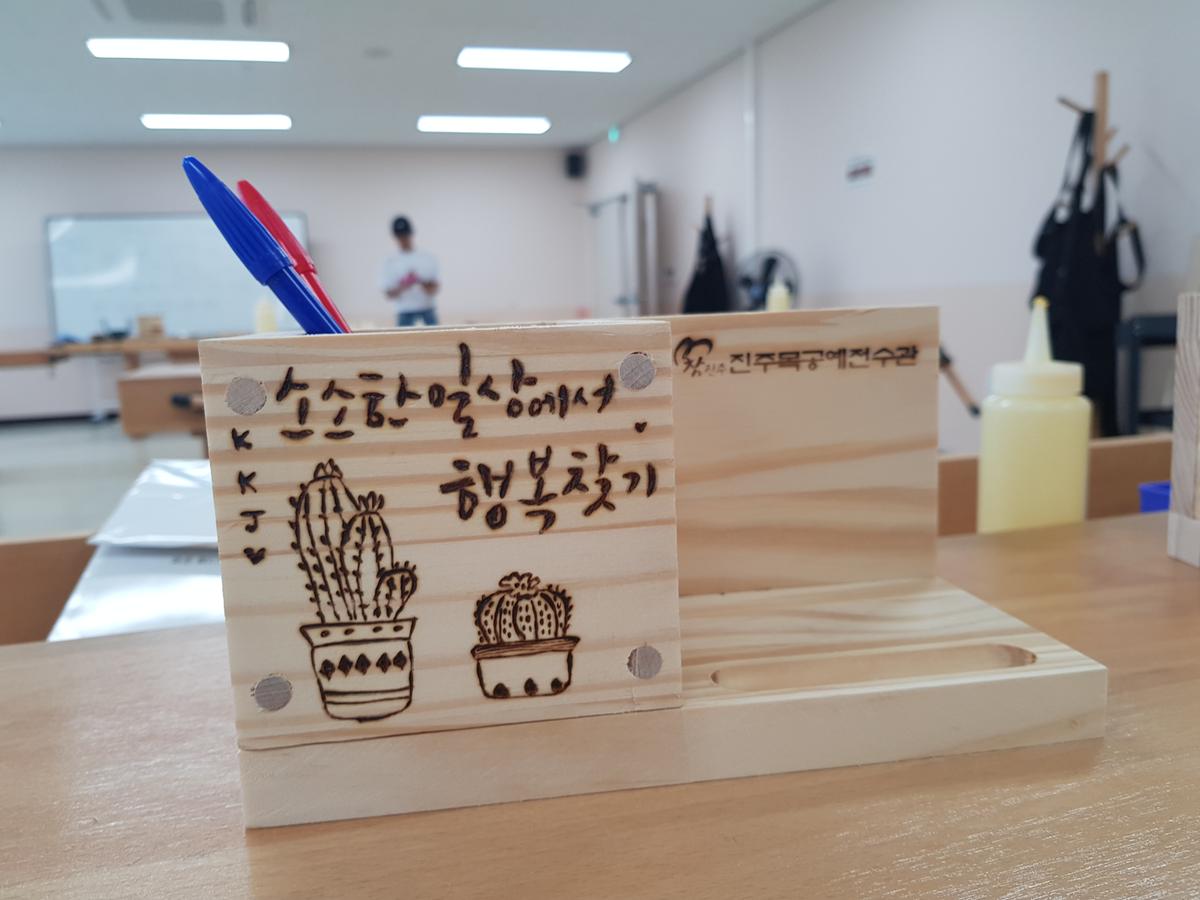 소소한 일상에서
행복찾기
K
K
J
참진주 진주목공예전수관